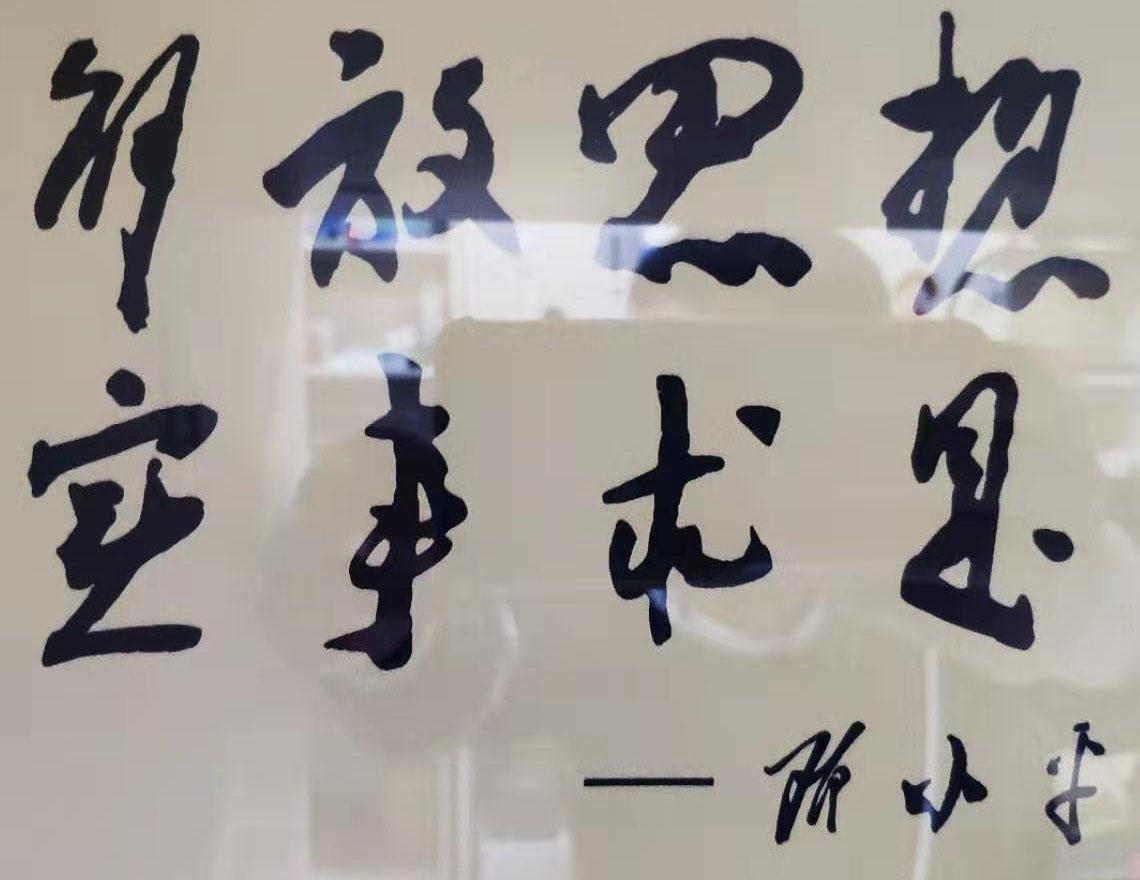 解放思想
实事求是
—邓小平